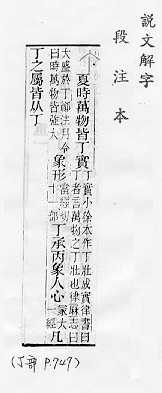 說文解字
段注本
夏時萬物皆丁實丁實小徐本作丁壯成實律書曰
丁者言萬物之丁壯也律厤志曰
大盛於丁鄭注月令
曰時萬物皆強大
象形當經切十一部丁承丙象人心冢大一經凡
丁之屬皆从丁
(丁部 P.747)